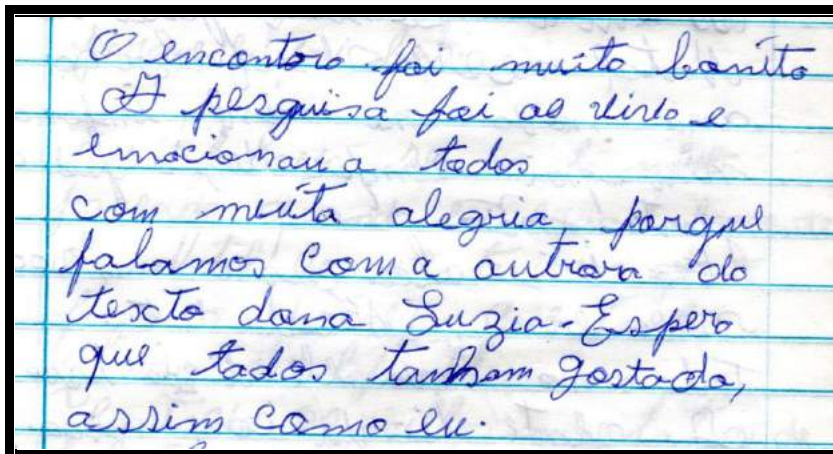 O encontoro foi muito bonito
A pesquisa foi ao vivo e
emocionau a todos
com muita alegria, porque
falamos com a autrora do
texto dona Luzia. Espero
que todos tanham gostado,
assim como eu.